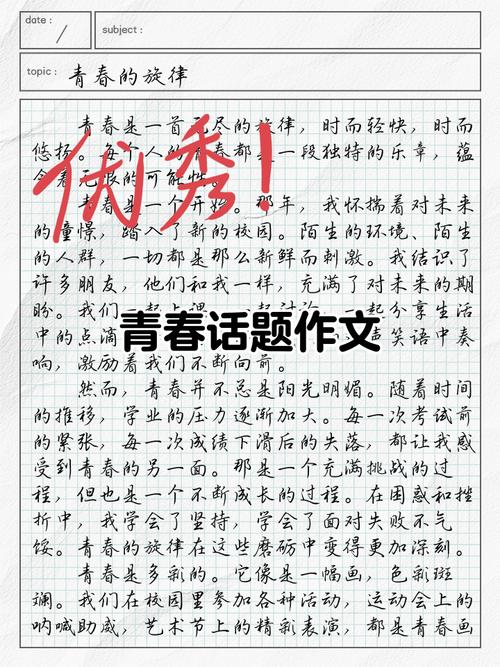 date :
subject :
topic : 青春的旋律
青春是一首无尽的旋律，时而轻快，时而
悠扬。每个人的青春都是一段独特的乐章，蕴
含着无限的可能性。
优秀！
青春是一个开始。那年，我怀揣着对未来
的憧憬，踏入了新的校园。陌生的环境、陌生
的人群，一切都是那么新鲜而刺激。我结识了
许多朋友，他们和我一样，充满了对未来的期
盼。我们一起上课、一起讨论、一起分享生活
中的点滴
青春话题作文
声笑语中奏
响，激励着我们不断向前。
然而，青春并不总是阳光明媚。随着时间
的推移，学业的压力逐渐加大。每一次考试前
的紧张，每一次成绩下滑后的失落，都让我感
受到青春的另一面。那是一个充满挑战的过
程，但也是一个不断成长的过程。在困惑和挫
折中，我学会了坚持，学会了面对失败不气
馁。青春的旋律在这些磨砺中变得更加深刻。
青春是多彩的。它像是一幅画，色彩斑
斓。我们在校园里参加各种活动，运动会上的
呐喊助威，艺术节上的精彩表演，都是青春画